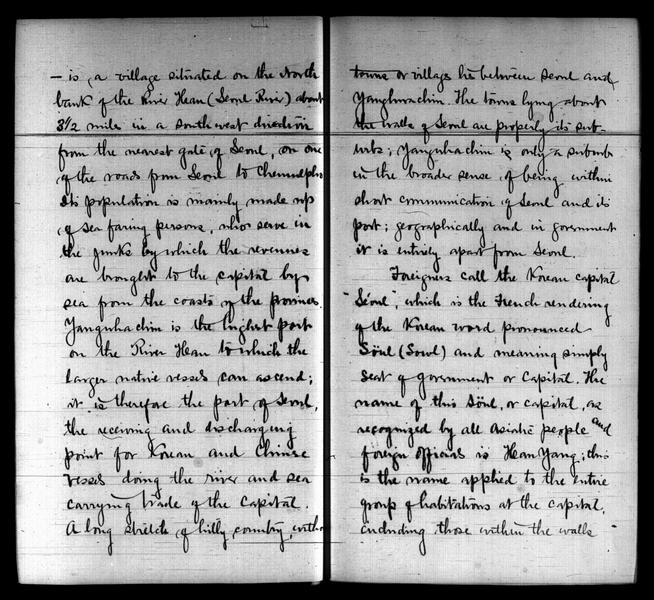 — is a village situated on the North
bank of the River Hean (Seoul River) about
3½ miles in a southwest direction
from the nearest gate of Seoul, on one
of the roads from Seoul to Chemulpho
Its population is mainly made up
of sea faring persons, who serve in
the junks by which the revenues
are brought to the capital by
sea from the coasts of the provinces.
Yanghwachin is the highest port
on the River Hean to which the
larger native vessels can ascend;
it is therefore the port of Seoul,
the receiving and discharging
point for Korean and Chinese
vessels doing the river and sea
carrying trade of the Capital.
A long stretch of hilly country, with
towns or villages lie between Seoul and
Yanghwachin. The towns lying about
the walls of Seoul are properly its sub-
urbs; Yanghwachin is only a suburb
in the broader sense of being within
short communication of Seoul and its
port; geographically and in government
it is entirely apart from Seoul.
Foreigners call the Korean capital
"Séoul", which is the French rendering
of the Korean word pronounced
Söul (Sowl) and meaning simply
Seat of government or Capital. The
name of this Söul, or capital, as
recognized by all Asiatic people and
foreign officials is Hean Yang; this
is the name applied to the entire
group of habitations at the capital,
including those within the walls